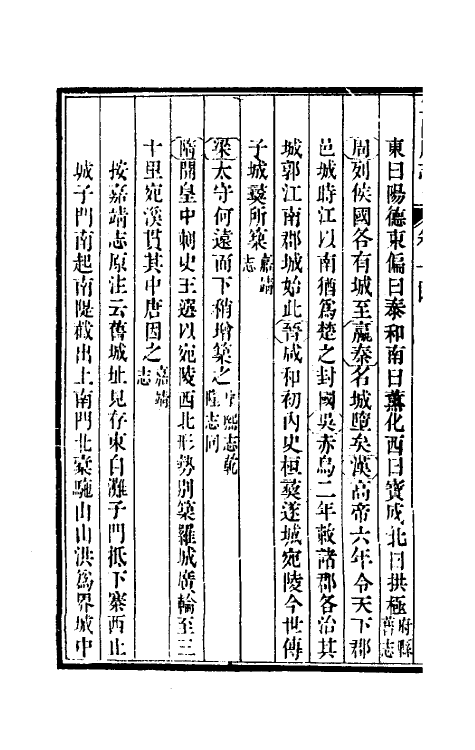 東曰陽德東偏曰泰和南曰薰化西曰寶成北曰拱極府縣舊志
周列侯國各有城至嬴秦名城墮矣漢高帝六年令天下郡
邑城時江以南猶爲楚之封國吳赤烏二年敕諸郡各治其
城郭江南郡城始此晉咸和初內史桓彝遂城宛陵今世傳
子城彝所築嘉靖志
梁太守何遠而下稍增築之淳熙志乾隆志同
隋開皇中刺史王選以宛陵西北形勢別築羅城廣輪至三
十里宛溪貫其中唐因之嘉靖志
按嘉靖志原注云舊城址見存東自灘子門抵下寨西止
城子門南起南隄截出上南門北橐駞山山洪爲界城中